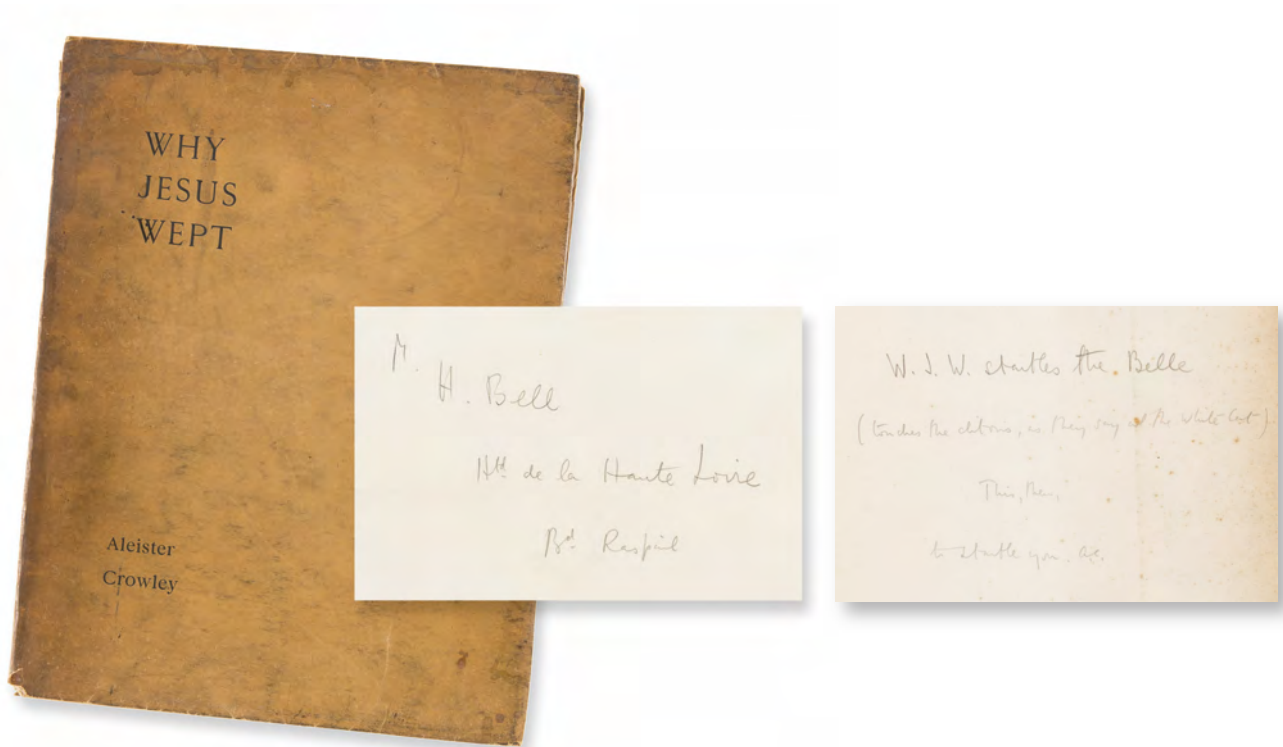 WHY
JESUS
WEPT
Aleister
Crowley
M.
H. Bell
Htl de la Haute Loire
Bd Raspail
W. J. W. startles the Belle
(touches the clitoris, as they say at the White Cat)
This, then,
to startle you. A.C.